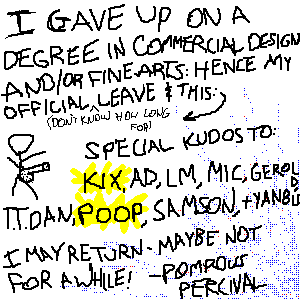 I GAVE UP ON A
DEGREE IN COMMERCIAL DESIGN
AND/OR FINE ARTS: HENCE MY
OFFICIAL LEAVE & THIS:
(DON'T KNOW HOW LONG
FOR)
SPECIAL KUDOS TO:
KIX, AD, LM, MIC, GEROLD
T.T. DAN, POOP, SAMSON, + YANBU
I MAY RETURN - MAYBE NOT
FOR A WHILE! - POMPOUS
PERCIVAL